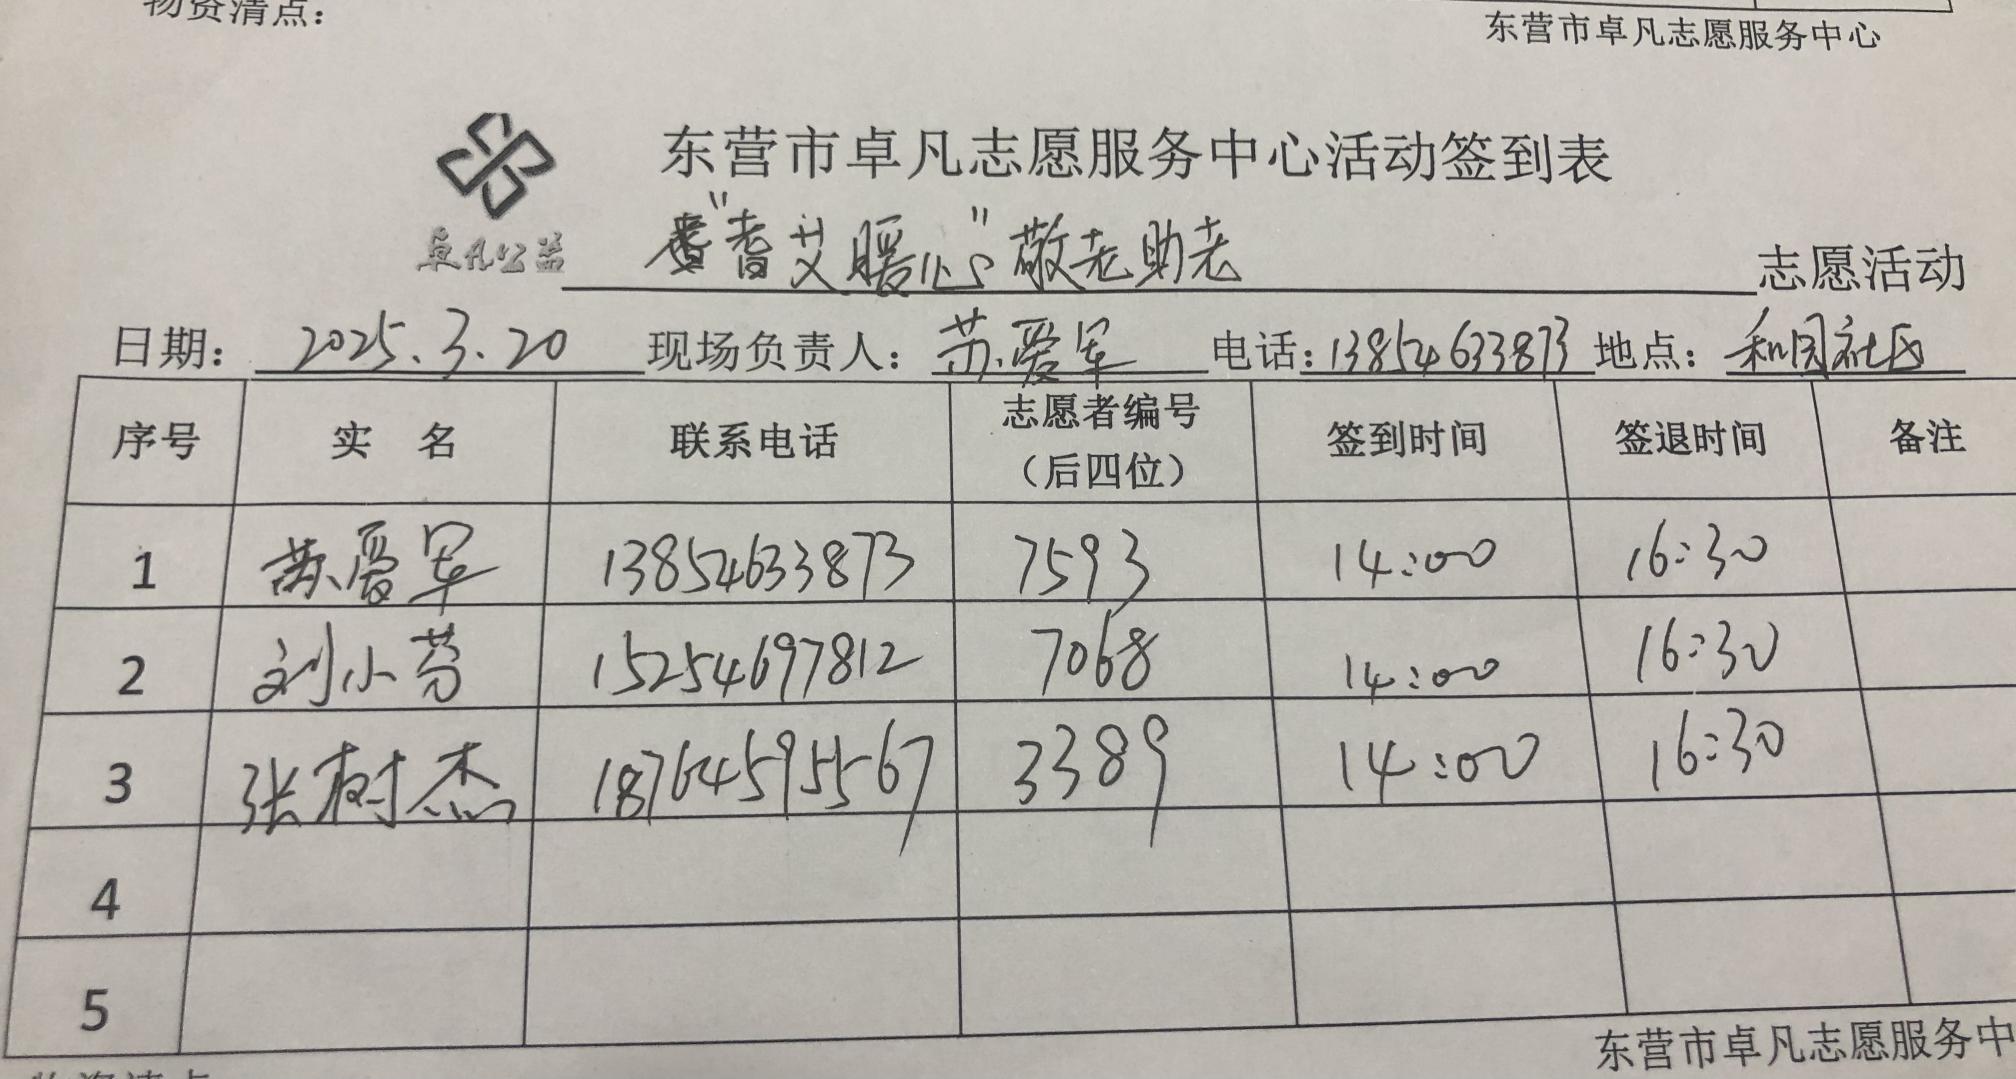 物资清点：
东营市卓凡志愿服务中心
东营市卓凡志愿服务中心活动签到表
卓凡公益
“耆艾暖心”敬老助老 志愿活动
日期： 2025.3.20 现场负责人： 苏爱军 电话： 13854633873 地点： 和园社区
序号 实 名 联系电话 志愿者编号（后四位） 签到时间 签退时间 备注
1 苏爱军 13854633873 7593 14:00 16:30
2 刘小芬 15254697812 7068 14:00 16:30
3 张树杰 18764595567 3389 14:00 16:30
4
5
东营市卓凡志愿服务中